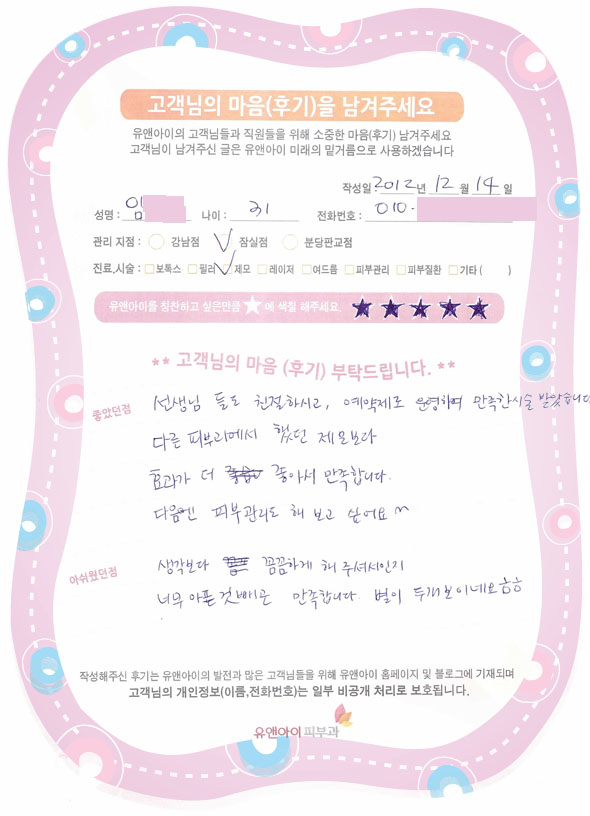 고객님의 마음(후기)을 남겨주세요
유앤아이의 고객님들과 직원들을 위해 소중한 마음(후기) 남겨주세요
고객님이 남겨주신 글은 유앤아이 미래의 밑거름으로 사용하겠습니다
작성일 2012 년 12 월 14 일
성명 : 임 나이 : 31 전화번호 : 010-
관리 지점 : 강남점 잠실점 분당판교점
진료,시술 : 보톡스 필러 제모 레이저 여드름 피부관리 피부질환 기타 ( )
유앤아이를 칭찬하고 싶은만큼 ★ 에 색칠 해주세요. ★ ★ ★ ★ ★
** 고객님의 마음 (후기) 부탁드립니다. **
좋았던점 선생님 들도 친절하시고, 예약제로 운영하며 만족한시술 받았습니다
다른 피부과에서 했던 제모보다
효과가 더 좋아서 만족합니다.
다음엔 피부관리도 해 보고 싶어요~
아쉬웠던점 생각보다 꼼꼼하게 해 주셔서인지
너무 아픈것빼곤 만족합니다. 별이 두개보이네요 ㅎㅎ
작성해주신 후기는 유앤아이의 발전과 많은 고객님들을 위해 유앤아이 홈페이지 및 블로그에 기재되며
고객님의 개인정보(이름,전화번호)는 일부 비공개 처리로 보호됩니다.
유앤아이피부과